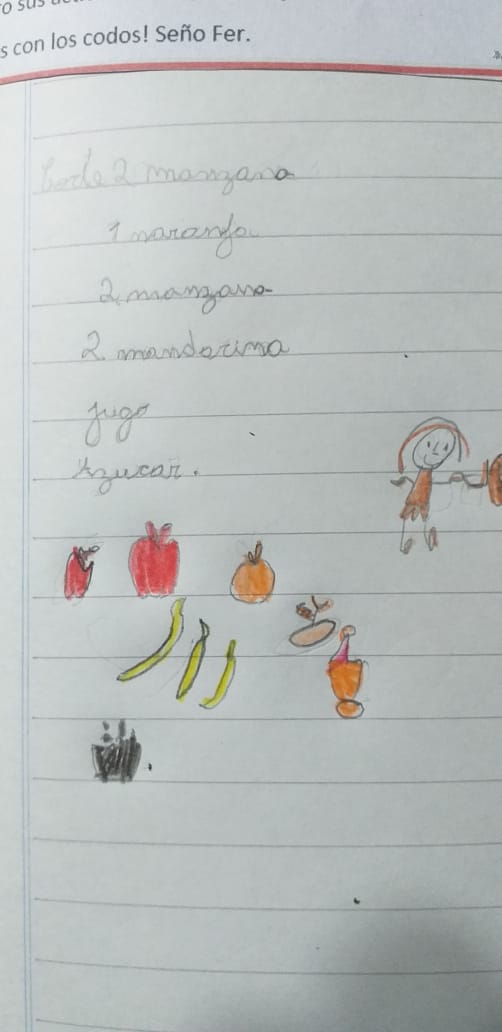 s con los codos! Seño Fer.
2 manzana
1 naranja
2 manzana
2 mandarina
jugo
Azucar.